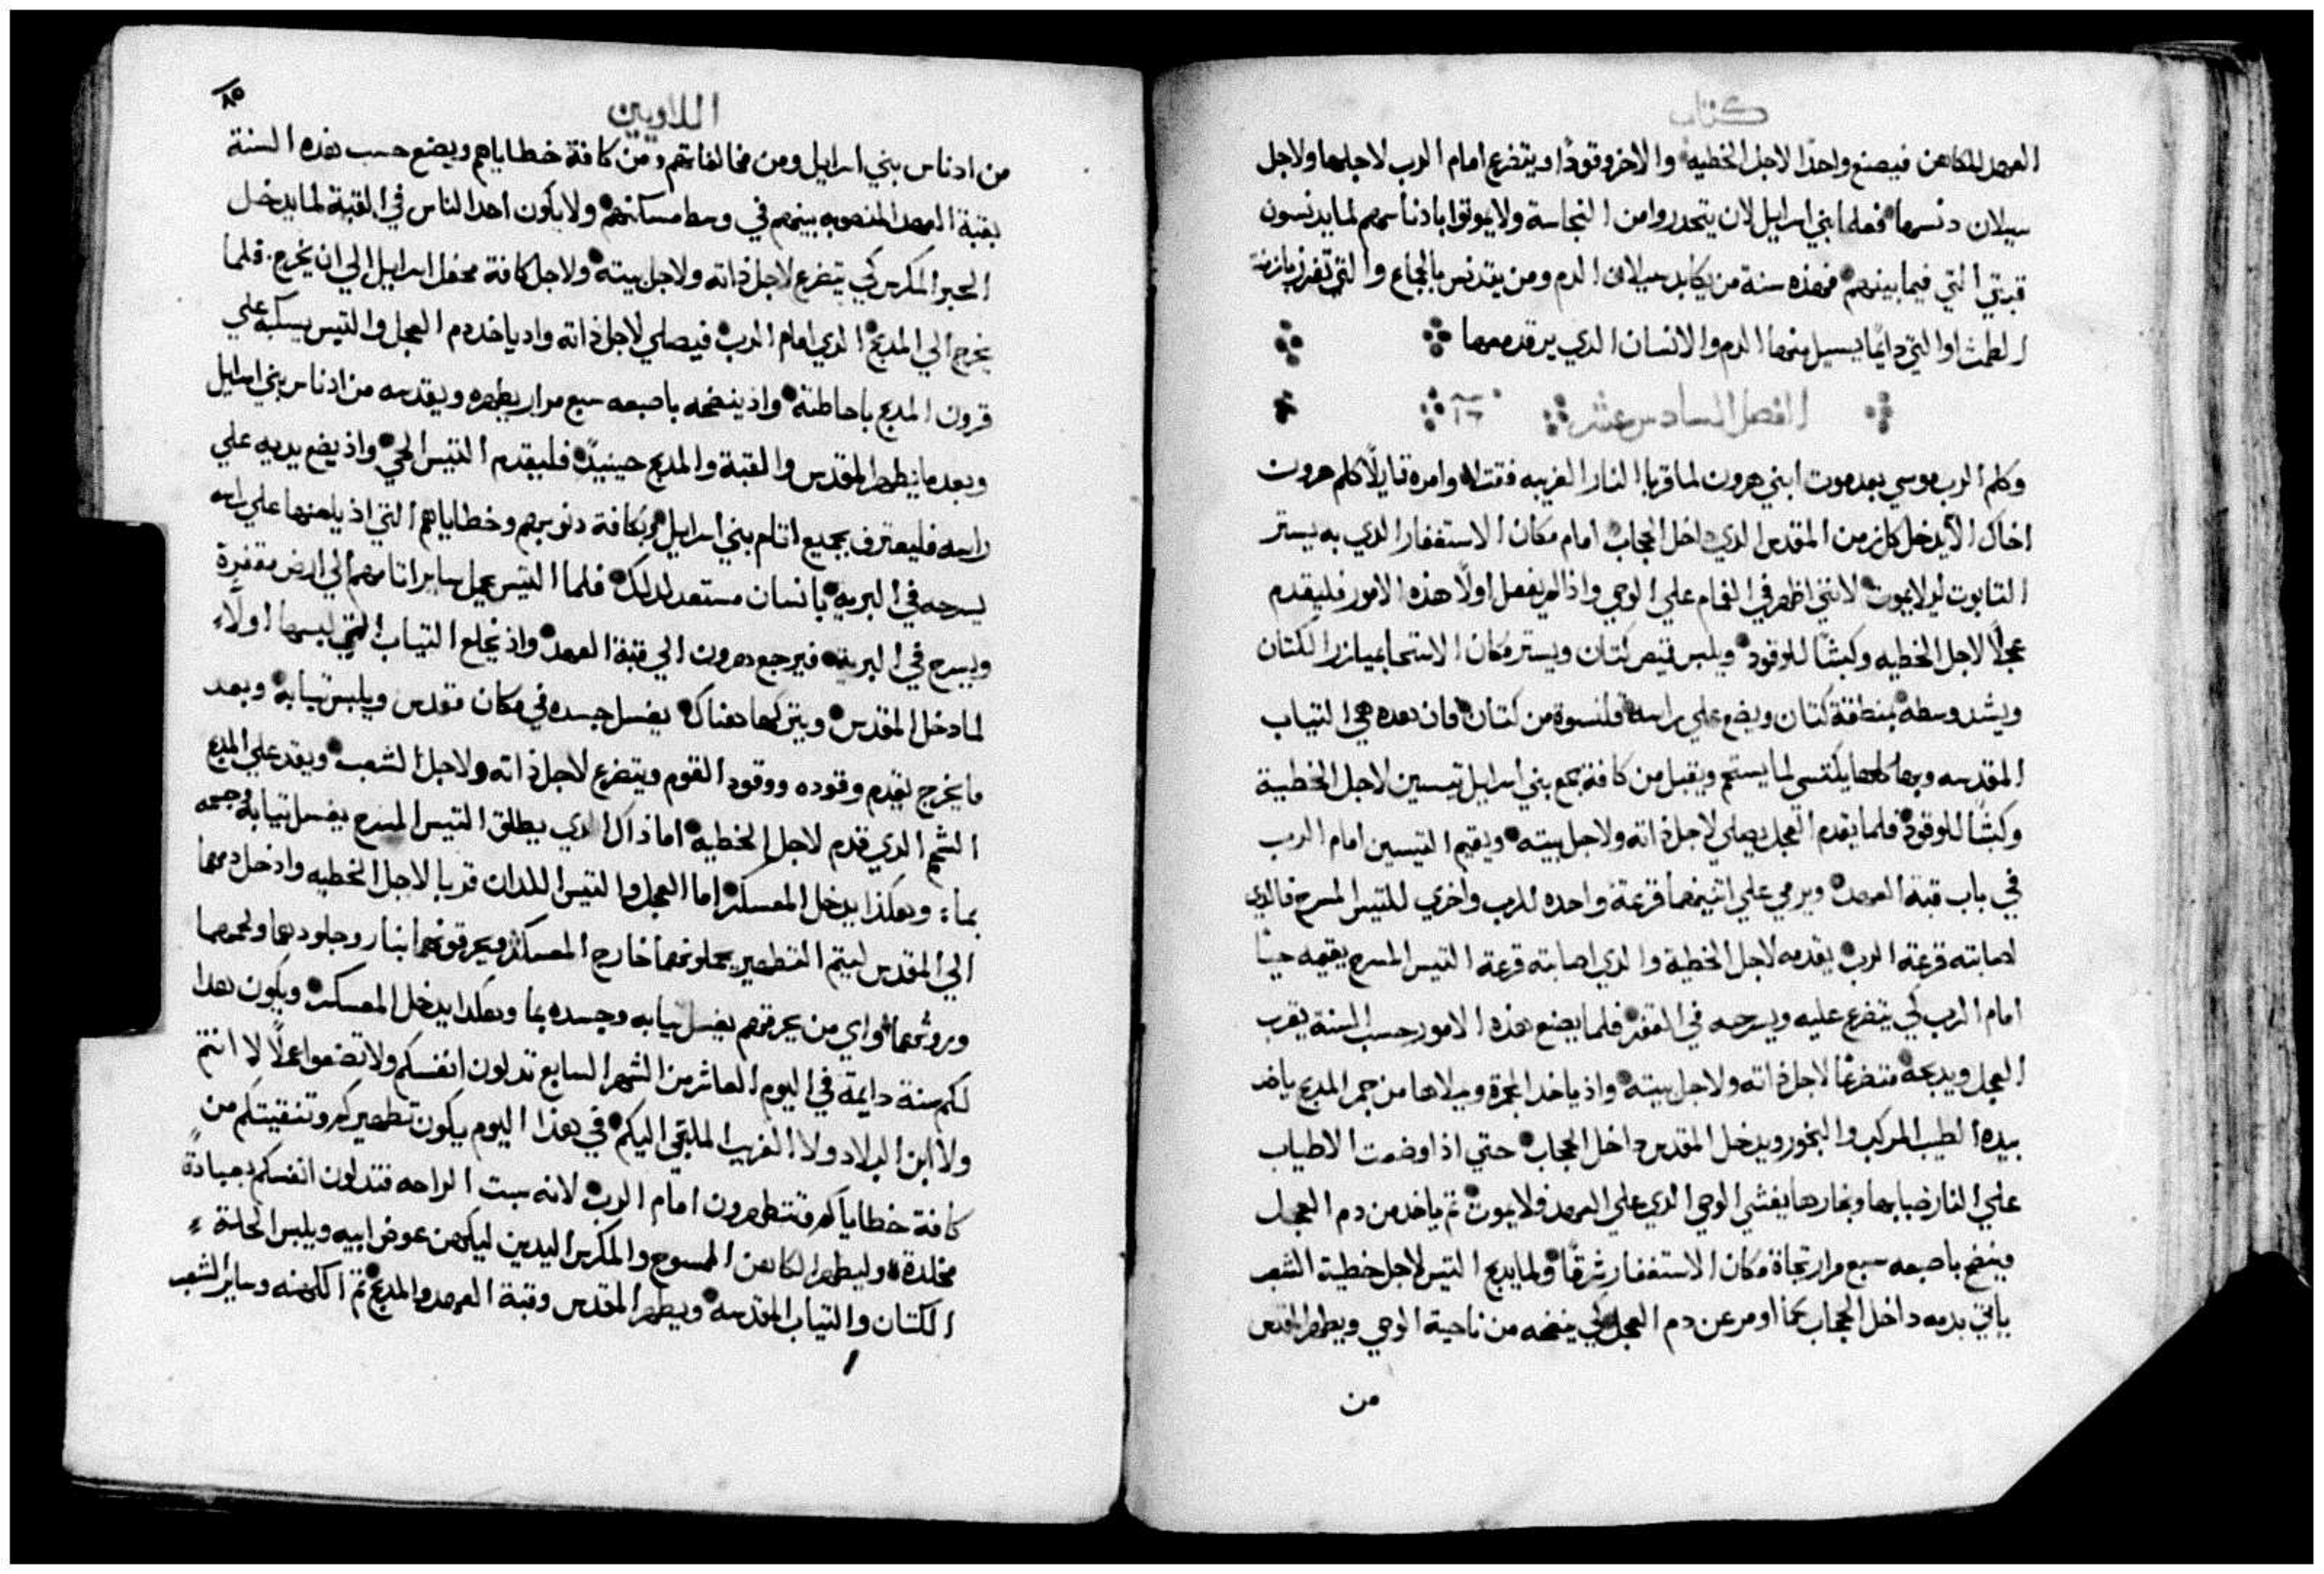 كتاب
العهد للكاهن فيصنع واحدًا لاجل الخطيه والاخر وقودًا ويتضرع امام الرب لاجلها ولاجل
سيلان دنسها فعلما بني اسرايل لان يتحدروا من النجاسة ولا يموتوا بادناسهم لما يدنسون
قبتي التي فيما بينهم فهذه سنة من يكابد سيلان الدم ومن يتدنس بالجماع والتي تفرز بازمنة
الطمث او التي دايمًا يسيل منها الدم والانسان الدي يرقد معها
الفصل السادس عشر ١٦
وكلم الرب موسي بعد موت ابني هرون لما قربا النار الغريبه فقتلا وامره قايلًا كلم هرون
اخاك الا يدخل كل زمن المقدس الدي داخل الحجاب امام مكان الاستغفار الدي به يستر
التابوت ليلا يموت لانني اظهر في الغمام علي الوحي واذا لم يفعل اولًا هذه الامور فليقدم
عجلًا لاجل الخطيه وكبشًا للوقود ويلبس قميص كتان ويستر مكان الاستحا بميازر الكتان
ويشد وسطه بمنطقة كتان ويضع علي راسه قلنسوة من كتان فان هده هي التياب
المقدسه وبها كلها يكتسي لما يستحم ويقبل من كافة جمع بني اسرايل تيسين لاجل الخطية
وكبشًا للوقود فلما يقدم العجل يصلي لاجل ذاته ولاجل بيته ويقيم التيسين امام الرب
في باب قبة العهد ويرمي علي اتنينهما قرعة واحده للرب واخري للتيس المسرح فالدي
اصابته قرعة الرب يقدمه لاجل الخطية والدي اصابته قرعة التيس المسرح يقيمه حيًا
امام الرب لكي يتضرع عليه ويسرحه في القفر فلما يصنع هذه الامور حسب السنة يقرب
العجل ويدبحه متضرعًا لاجل ذاته ولاجل بيته واذ ياخد المجمرة ويملاها من جمر المدبح ياخد
بيده الطيب المركب والبخور ويدخل المقدس داخل الحجاب حتي اذا وضعت الاطياب
علي النار ضبابها وبخارها يغشي الوحي الدي علي العهد فلا يموت تم ياخد من دم العجل
وينضح باصبعه سبع مرار تجاة مكان الاستغفار شرقًا ولما يدبح التيس لاجل خطية الشعب
ياتي بدمه داخل الحجاب كما اومر عن دم العجل لكي ينضحه من ناحية الوحي ويطهر المقدس
من
٨٥
اللاويين
من ادناس بني اسرايل ومن مخالفاتهم ومن كافة خطاياهم ويصنع حسب هذه السنة
بقبة العهد المنصوبه بينهم في وسط مسكنهم ولا يكون احد الناس في القبة لما يدخل
الحبر المكرس لكي يتضرع لاجل ذاته ولاجل بيته ولاجل كافة محفل اسرايل الي ان يخرج فلما
يخرج الي المدبح الدي امام الرب فيصلي لاجل ذاته واد ياخد دم العجل والتيس يسكبه علي
قرون المدبح باحاطته واذ ينضحه باصبعه سبع مرار يطهره ويقدسه من ادناس بني اسرايل
وبعد ما يتطهر المقدس والقبة والمدبح حينيدٍ فليقدم التيس الحي واذ يضع يديه علي
راسه فليعترف بجميع اتام بني اسرايل وبكافة دنوبهم وخطاياهم التي اذ يلعنها علي راسه
يسرحه في البريه بانسان مستعد لدلك فلما التيس يحمل ساير اتامهم الي ارض مقفرة
ويسرح في البرية فيرجع هرون الي قبة العهد واذ يخلع التياب التي لبسها اولًا
لما دخل المقدس ويتركها هناك يغسل جسده في مكان مقدس ويلبس تيابه وبعد
ما يخرج يقدم وقوده ووقود القوم ويتضرع لاجل ذاته ولاجل الشعب ويقد علي المدبح
الشحم الدي قدم لاجل الخطيه اما ذاك الدي يطلق التيس المسرح يغسل تيابه وجسمه
بماء وهكذا يدخل المعسكر اما العجل والتيس اللدان قربا لاجل الخطيه وادخل دمهما
الي المقدس ليتم التطهير يحملونهما خارج المعسكر ويحرقونهما بنار وجلودهما ولحومهما
وروثهما واي من يحرقهم يغسل تيابه وجسده بما وهكدا يدخل المعسكر ويكون هدا
لكم سنة دايمة في اليوم العاشر من الشهر السابع تدلون انفسكم ولا تصنعوا عملًا لا انتم
ولا ابن البلاد ولا الغريب الملتجي اليكم في هذا اليوم يكون تطهيركم وتنقيتكم من
كافة خطاياكم وتتطهرون امام الرب لانه سبت الراحه فتدلون انفسكم بعبادةٍ
مخلدة وليطهر الكاهن الممسوح والمكرس اليدين ليكهن عوض ابيه ويلبس الحلة
الكتان والتياب المقدسه ويطهر المقدس وقبة العهد والمدبح تم الكهنه وساير الشعب